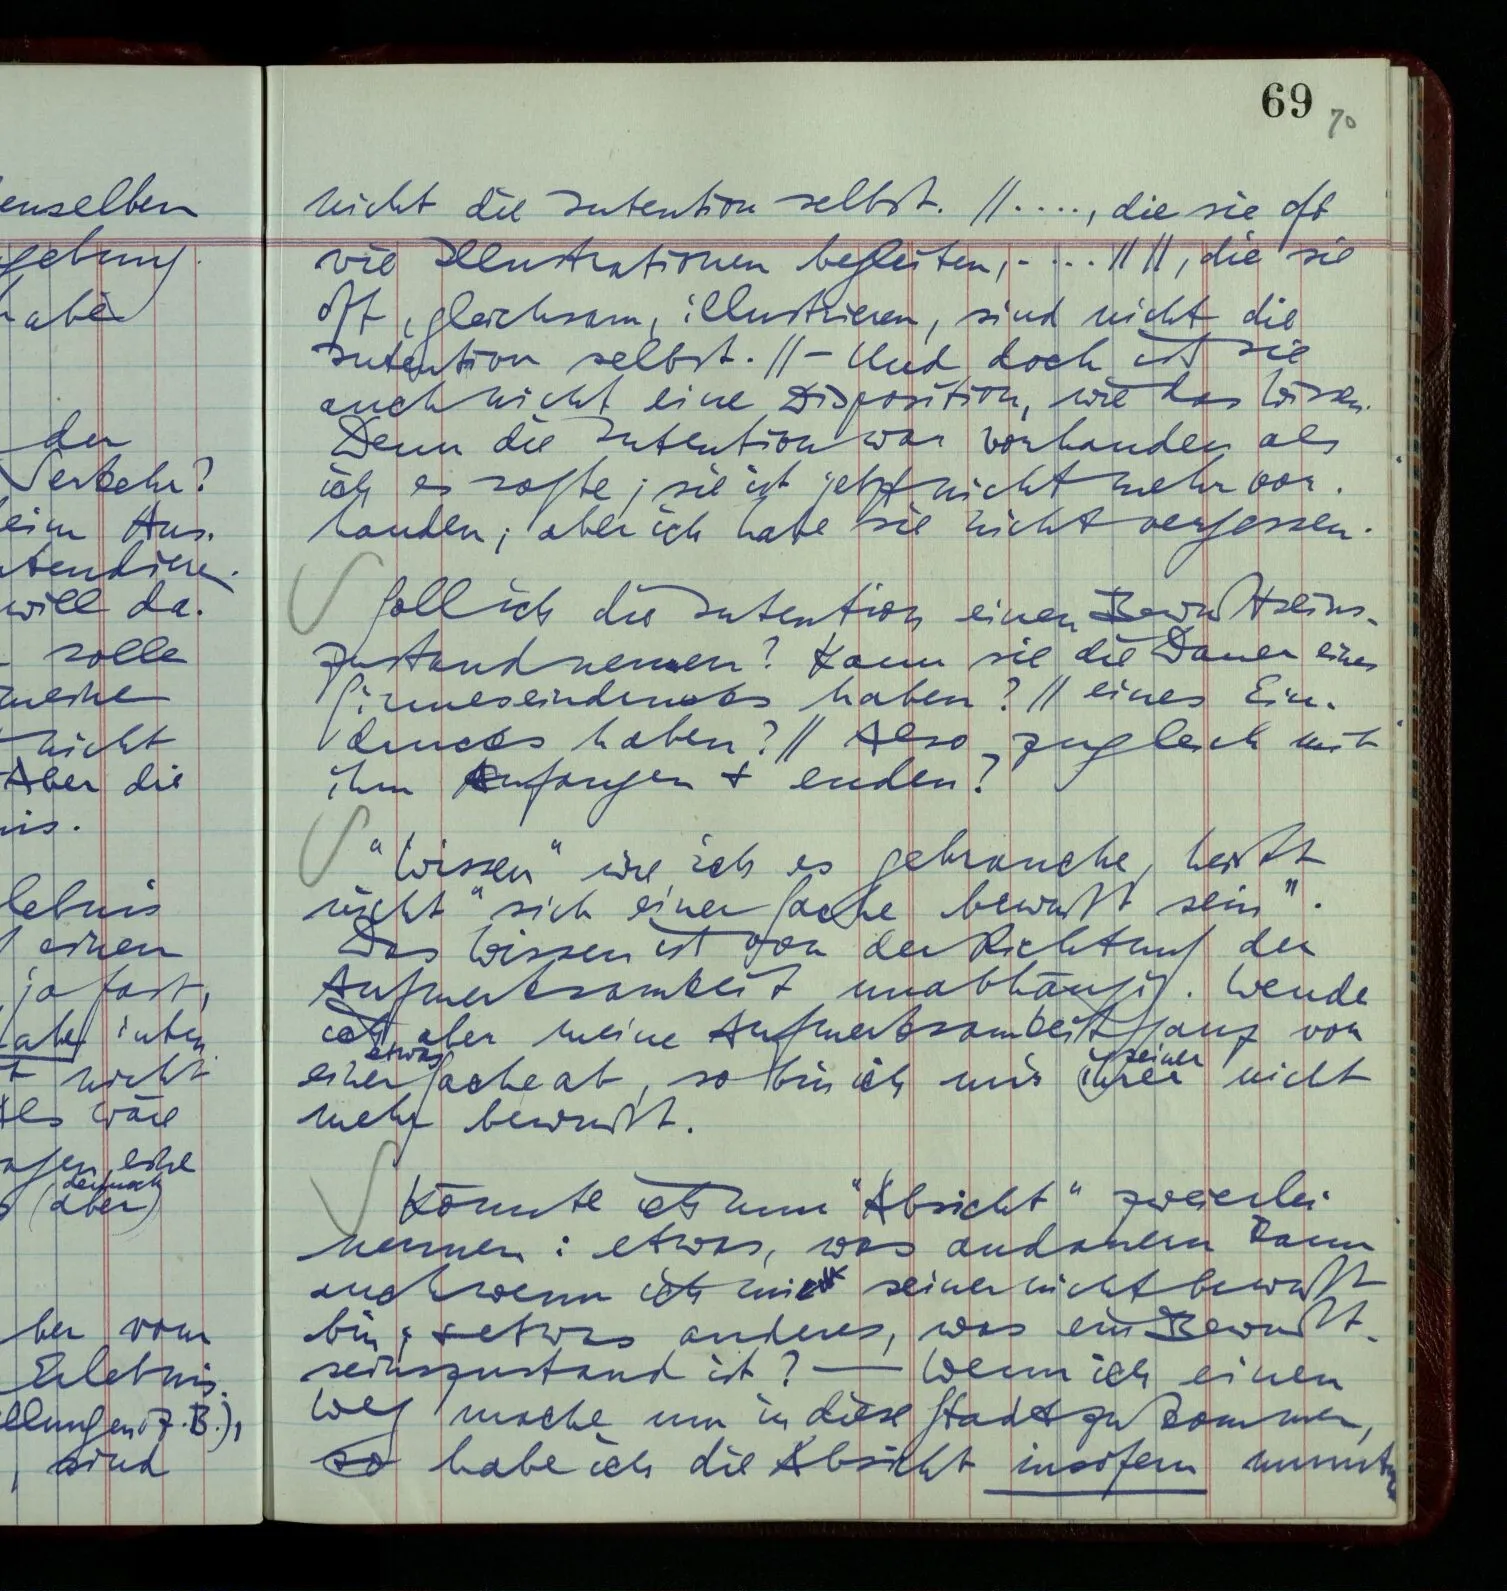 enselben
gebung.
habe
der
Verkehr?
beim Aus-
intendieren.
will da-
solle
meine
nicht
Aber die
nis.
lebnis
einen
ja fast,
habe inten
nicht
Als wäre
agen, eine
dennoch
(aber)
ber vom
Erlebnis.
ellungen z.B.),
, sind
69 70
nicht die Intention selbst. //...., die sie oft
wie Illustrationen begleiten, - ....// //, die sie
oft, gleichsam, illustrieren, sind nicht die
Intention selbst. // – Und doch ist sie
auch nicht eine Disposition, wie das Wissen.
Denn die Intention war vorhanden als
ich es sagte; sie ist jetzt nicht mehr vor-
handen; aber ich habe sie nicht vergessen.
Soll ich die Intention einen Bewußtseins-
zustand nennen? Kann sie die Dauer eines
Sinneseindruckes haben? // eines Ein-
druckes haben? // Also zugleich mit
ihm anfangen & enden?
"Wissen" wie ich es gebrauche, heißt
nicht "sich einer Sache bewußt sein".
Das Wissen ist von der Richtung der
Aufmerksamkeit unabhängig. Wende
ich aber meine Aufmerksamkeit ganz von
etwas seiner
einer Sache ab, so bin ich mir ihrer nicht
mehr bewußt.
Könnte ich nun "Absicht" zweierlei
nennen: etwas, was andauern kann
auch wenn ich mir seiner nicht bewußt
bin; & etwas anderes, was ein Bewußt-
seinszustand ist? — Wenn ich einen
Weg mache um in diese Stadt zu kommen,
so habe ich die Absicht insofern ununter